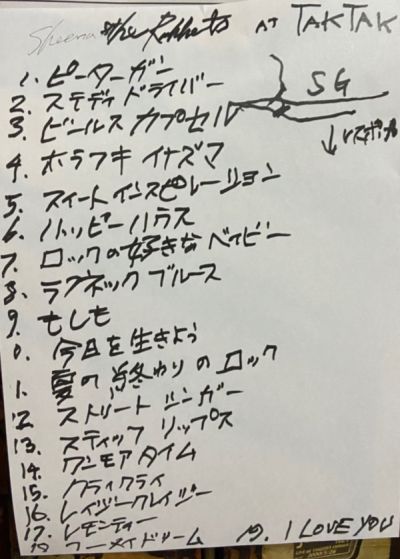 Sheena & the Rokkets AT TAKTAK
1. ピーターガン
2. ステディ ドライバー
SG
3. ビールス カプセル
4. ホラフキ イナズマ
5. スイート インスピレーション
6. ハッピー ハウス
7. ロックの好きなベイビー
8. ラフネック ブルース
9. もしも
0. 今日を生きよう
1. 夏の終わりのロック
12 ストリート シンガー
13. スティッフ リップス
14. ワンモア タイム
15. クライクライ
16. レイジークレイジー
17. レモンティー
ユーメイドリーム
19. I LOVE YOU